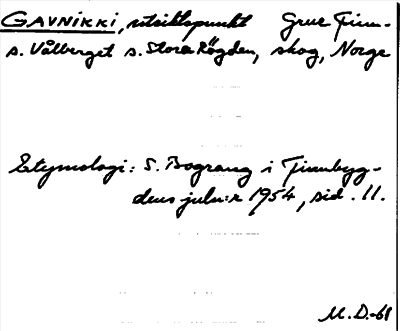 GAVNIKKI, utsiktspunkt Grue Finn-
s. Vålberget s. Stora Rögden, skog, Norge
Etymologi: S. Bograng i Finnbyg-
dens julnr 1954, sid. 11.
M.D.-61